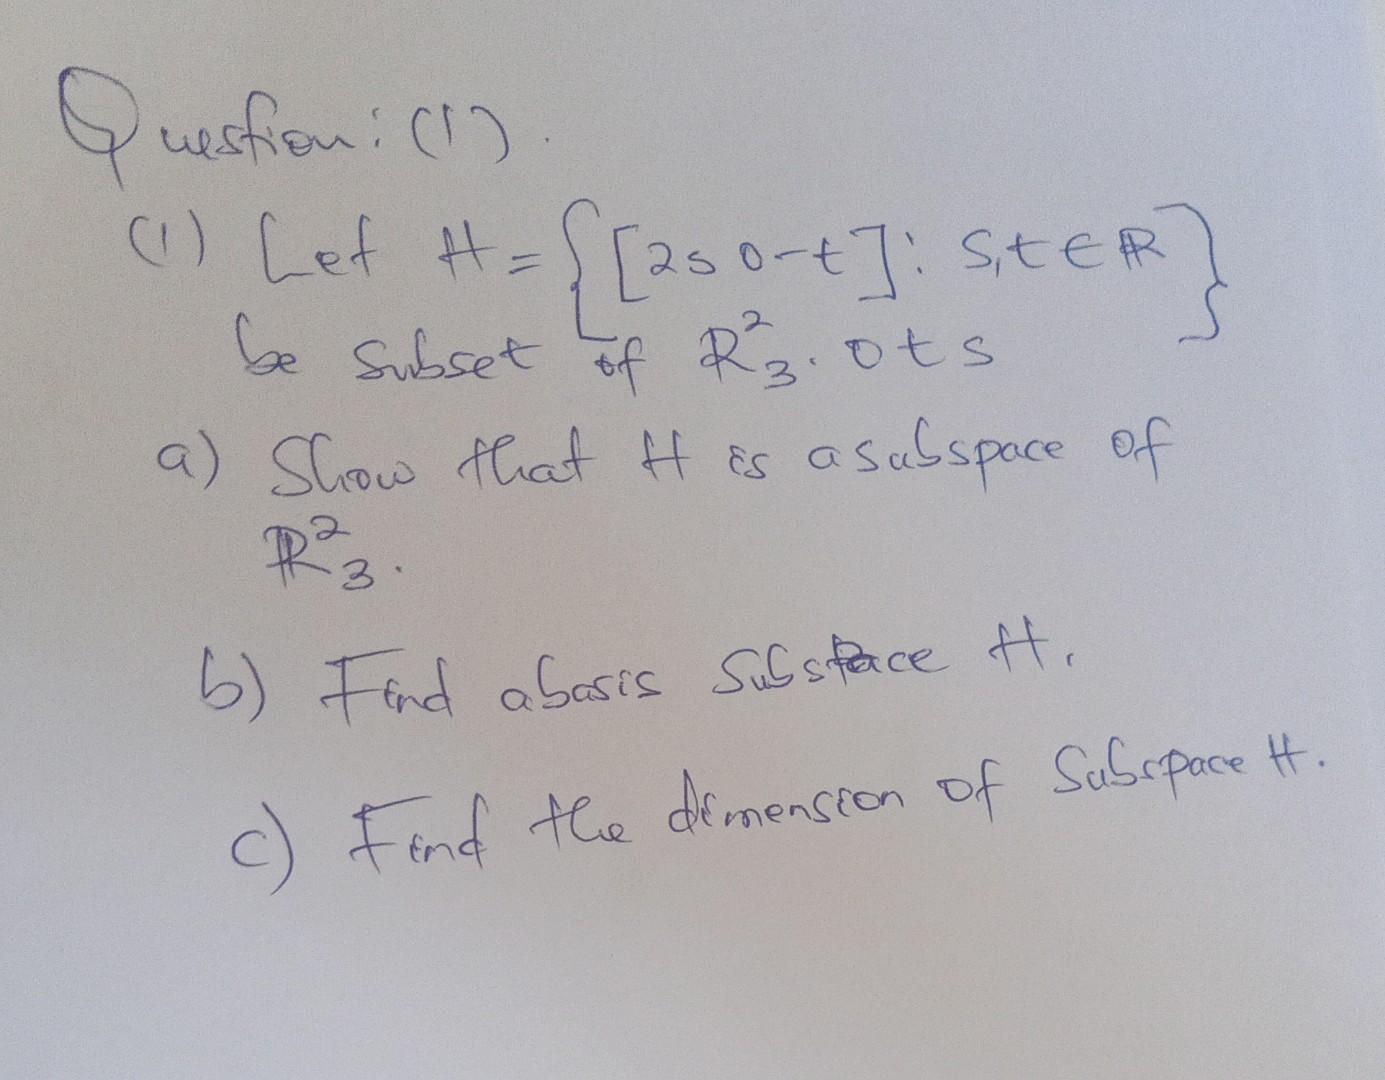 Question: (1).
(1) Let H = { [2s 0 -t] : s,t ∈ ℝ }
be subset of ℝ²₃. 0 t s
a) Show that H is a subspace of
ℝ²₃.
b) Find a basis subspace H.
c) Find the dimension of Subspace H.